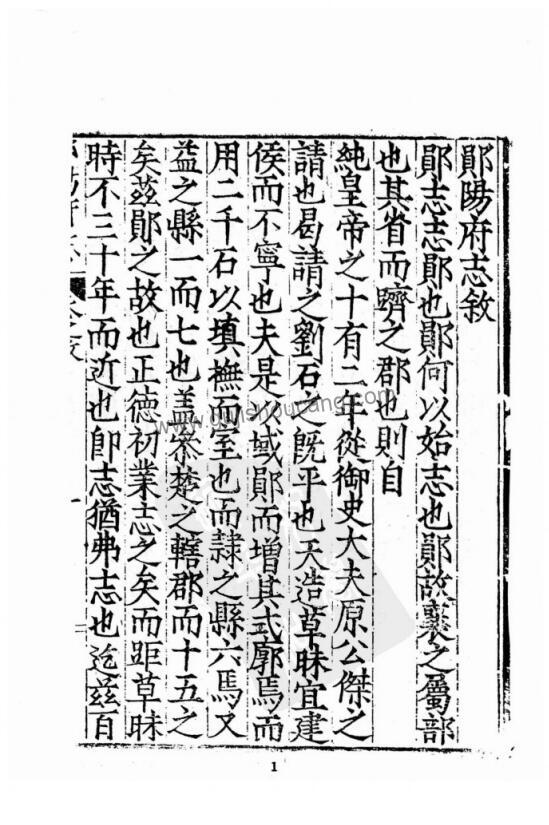 鄖陽府志敘
鄖志志鄖也鄖何以始志也鄖故襄之屬部
也其省而躋之郡也則自
純皇帝之十有二年從御史大夫原公傑之
請也曷請之劉石之旣平也天造草昧宜建
侯而不寧也夫是以域鄖而增其式廓焉而
用二千石以填撫而室也而隷之縣六焉又
益之縣一而七也盖寮楚之轄郡而十五之
矣茲鄖之故也正德初業志之矣而距草昧
時不三十年而近也卽志猶弗志也迄茲百
1
www.gujishoucang.com